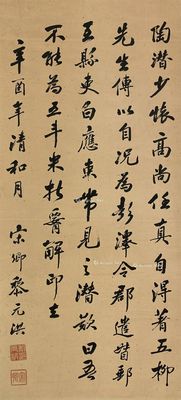 陶潜少懷高尚任真自得著五柳
先生傳以自况為彭澤令郡遣督郵
至縣吏白應束帶見之潛歎曰吾
不能為五斗米折腰解印去
辛酉年清和月
宋卿黎元洪